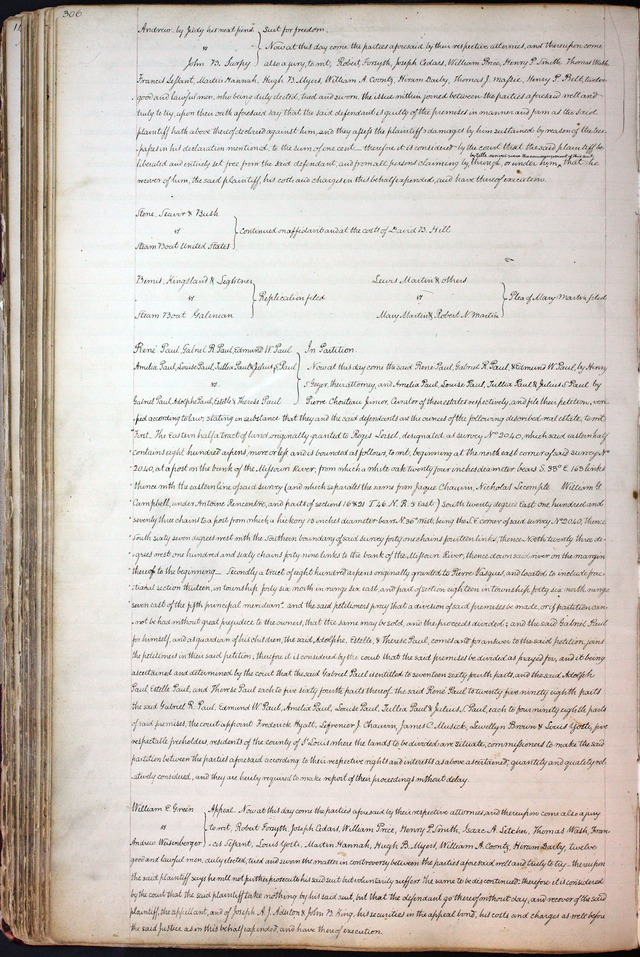 306
Andrew by Judy his next friend } Suit for freedom.
vs Now at this day come the parties aforesaid by their respective attornies, and thereupon come
John B. Sarpy also a jury, to wit, Robert Forsyth, Joseph Cedars, William Price, Henry P. Smith, Thomas Wash,
Francis Lefsant, Martin Hannah, Hugh B. Myers, William A. Coontz, Hiram Daily, Thomas J. Henry P. Bell, twelve
good and lawful men, who being duly elected, tried and sworn the issue within joined between the parties aforesaid well and
truly to try, upon their oath aforesaid say that the said defendant is guilty of the premises in manner and form as the said
plaintiff hath above thereof declared against him, and they assess the plaintiff's damages by him sustained by reason of the tres-
passes in his declaration mentioned, to the sum of one cent — therefore it is considered by the court that the said plaintiff be
by title derived since the commencement of this suit
liberated and entirely set free from the said defendant, and from all persons claiming by, through, or under him, that he
recover of him, the said plaintiff, his costs and charges in this behalf expended, and have thereof execution.
Stone, Seaver & Bush
vs } Continued on affidavit and at the costs of David B. Hill
Steam Boat United States
Bemis, Kingsland & Lightner
vs } Replication filed
Steam Boat Galenian
Lewis Martin & others
vs } Plea of Mary Martin filed
Mary Martin & Robert N. Martin
René Paul, Gabriel R. Paul, Edmund W. Paul } In Partition.
Amelia Paul, Louise Paul, Tullia Paul & Julius S. Paul Now at this day come the said René Paul, Gabriel R. Paul, & Edmund W. Paul, by Henry
vs S. Geyer, their attorney, and Amelia Paul, Louise Paul, Tullia Paul & Julius S. Paul by
Gabriel Paul, Adolphe Paul, Estelle & Therese Paul Pierre Chouteau Junior, Curator of their estates respectively, and file their petition, veri-
fied according to law, stating in substance that they and the said defendants are the owners of the following described real estate, to wit
First. The eastern half a tract of land originally granted to Regis Loisel, designated as survey No. 2040, which said eastern half
contains eight hundred arpens, more or less and is bounded as follows, to wit, beginning at the north east corner of said survey No.
2040, at a post on the bank of the Missouri River, from which a white oak twenty four inches diameter bears S. 38° E. 163 links
thence with the eastern line of said survey (and which separates the same from Jaque Chauvin, Nicholas Lecomple William G.
Campbell, under Antoine Rencontre, and parts of sections 16 & 21 T. 46 N. R. 5 East) South twenty degrees East one hundred and
seventy three chains to a post from which a hickory 15 inches diameter bears N. 36° West, being the S.E. corner of said survey No. 2040, thence
South sixty seven degrees west with the Southern boundary of said survey forty one chains fourteen links, thence North twenty three de-
grees west one hundred and sixty chains forty nine links to the bank of the Missouri River, thence down said river on the margin
thereof to the beginning — Secondly a tract of eight hundred arpens originally granted to Pierre Vasques, and located to include frac-
tional section thirteen, in township forty six north in range six east and part of section eighteen in township forty six north range
seven east of the fifth principal meridian. and the said petitioners pray that a division of said premises be made, or if partition can-
not be had without great prejudice to the owners, that the same may be sold, and the proceeds divided; and the said Gabriel Paul
for himself, and as guardian of his children, the said, Adolphe, Estelle, & Therese Paul, comes and for answer to the said petition, joins
the petitioners in their said petition; therefore it is considered by the court that the said premises be divided as prayed for, and it being
ascertained and determined by the court that the said Gabriel Paul is entitled to seventeen sixty fourth parts, and the said Adolph
Paul, Estelle Paul, and Therese Paul each to five sixty fourth parts thereof. the said René Paul to twenty five ninety eighth parts
the said Gabriel R. Paul, Edmund W. Paul, Amelia Paul, Louise Paul, Tullia Paul & Julius S. Paul, each to four ninety eighth parts
of said premises, the court appoint Frederick Hyatt, Lefrenier J. Chauvin, James C. Musick, Lewellyn Brown & Louis Gotti, five
respectable freeholders, residents of the county of St Louis where the lands to be divided are situate, commissioners to make the said
partition between the parties aforesaid according to their respective rights and interests as above ascertained; quantity and quality rel-
atively considered, and they are hereby required to make report of their proceedings without delay.
William C. Green } Appeal. Now at this day come the parties aforesaid by their respective attornies, and thereupon come also a jury
vs to wit, Robert Forsyth, Joseph Cedars, William Price, Henry P. Smith, Isaac A. Letcher, Thomas Wash, Fran-
Andrew Weisenberger cis Lefsant, Louis Gotti, Martin Hannah, Hugh B. Myers, William A. Coontz, Hiram Daily, twelve
good and lawful men, duly elected, tried and sworn the matter in controversy between the parties aforesaid well and truly to try — thereupon
the said plaintiff says he will not further prosecute his said suit but voluntarily suffers the same to be discontinued: therefore it is considered
by the court that the said plaintiff take nothing by his said suit, but that the defendant go thereof without day, and recover of the said
plaintiff, the appellant, and of Joseph A. J. Aduton & John B. King, his securities in the appeal bond, his costs and charges as well before
the said Justice as in this behalf expended, and have thereof execution.